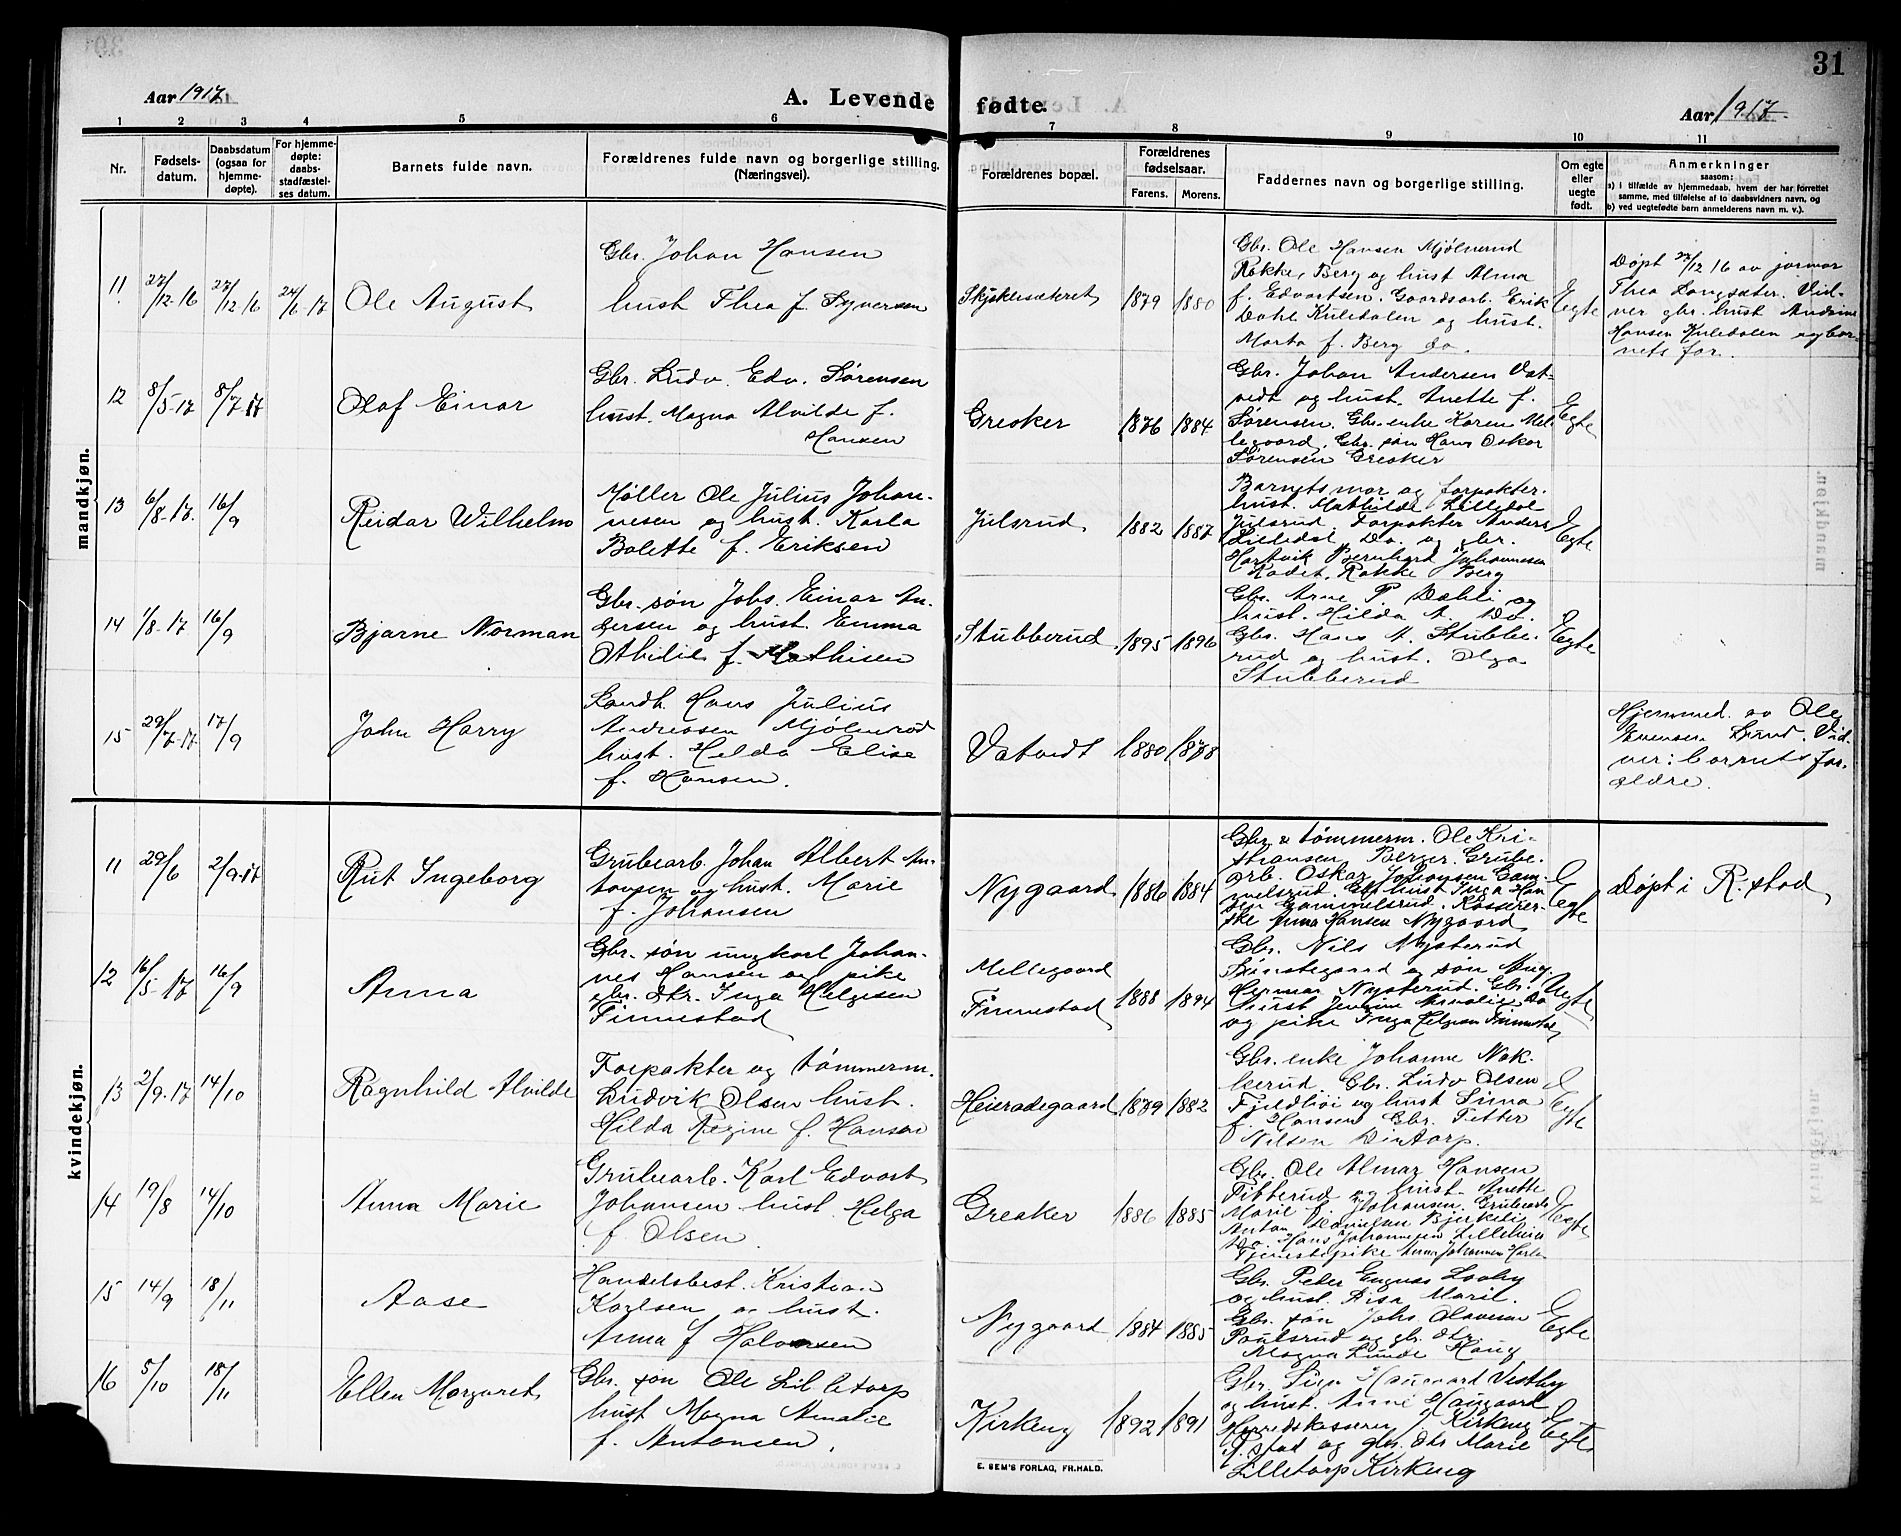 31
Aar 1917
A. Levende fødte.
Aar 1917
1 2 3 4 5 6 7 8 9 10 11
Nr.
Fødsels-
datum.
Daabsdatum
(ogsaa for
hjemme-
døpte).
For hjemme-
døpte:
daabs-
stadfæstel-
ses datum.
Barnets fulde navn.
Forældrenes fulde navn og borgerlige stilling.
(Næringsvei).
Forældrenes bopæl.
Forældrenes
fødselsaar.
Farens. Morens.
Faddernes navn og borgerlige stilling.
Om egte
eller
uegte
født.
Anmerkninger
saasom:
a) i tilfælde av hjemmedaab, hvem der har forrettet
samme, med tilføielse af to daabsvidners navn, og
b) ved uegtefødte barn anmelderens navn m. v.).
mandkjøn.
11
27/12-16
27/12-16
24/6-17
Ole August
Gbr. Johan Hansen
hust Thea f. Syversen
1879 1880
Gbr. Ole Hansen Mjølnerud
Rakke, Berg og hust Alma
f. Edvartsen. Gaardsarb. Erik
Dahl Kuledalen og hust.
Marta f. Berg do.
Egte
Døpt 27/12 16 av jormor
Thea Langsæter. Vid-
ner gbr. hust Andrine
Hansen Kuledalen og bar-
nets far.
12
8/5-17
8/7-17
Olaf Einar
Gbr. Ludv. Edv. Sørensen
hust. Magna Alvilde f.
Hansen
Greaker
1876 1884
Gbr. Johan Andersen Vat-
vedt og hust. Anette f.
Sørensen. Gbr. enke Karen Mel-
legaard, Gbr. søn Hans Oskar
Sørensen Greaker
Egte
13
6/8-17.
16/9
Reidar Wilhelm
Møller Ole Julius Johan-
nesen og hust. Karla
Bolette f. Eriksen
Julsrud
1882 1887
Barnets mor og forpakter-
hust. Mathilde Lilledal
Julsrud. Forpakter Anders
Lilledal Do. og gbr.
Hartvik Bernhard Johannesen
Rakke Berg
Egte
14
1/8-17
16/9
Bjarne Norman
Gbr. søn Johs. Einar An-
dersen og hust. Emma
Othilie f. Mathisen
Stubberud
1895 1896
Gbr. Arne P Dæhli og
hust. Hilda A. Do.
Gbr. Hans A. Stubbe-
rud og hust. Olga
Stubberud
Egte
15
29/7-17
17/9
John Harry
Landh. Hans Julius
Andreasen Mjølnerød
hust. Helda Elise
f. Hansen.
Vatvedt
1880 1878
Hjemmed. av Ole
Evensen Lund. Vid-
ner: barnets for-
ældre.
kvindekjøn.
11
29/6
2/9-17
Rut Ingeborg
Grubearb. Johan Albert An-
tonsen og hust. Marie
f. Johansen
Nygaard
1886 1884
Gbr & tømmerm. Ole Kri-
stiansen Berger. Grube-
arb. Oskar Johansen Gam-
melsrud. Gbr hust Inga Han-
sen Gammelsrud. Kasserer-
ske Anna Hansen Nygaard
Egte
Døpt i R.stad
12
16/5-17
16/9
Anna
Gbr. søn ungkarl Johan-
nes Hansen og pike
gbr. dtr. Inga Helgesen
Finnestad
Mellegaard
Finnestad
1888 1894
Gbr. Nils Nysterud
og søn Ung.
Herman Nysterud. Gbr.
hust Jensine Do
og pike Inga Helgesen Finnestad
Uegte
13
2/9-17
14/10
Ragnhild Alvilde
Forpakter og tømmerm.
Ludvik Olsen hust.
Hilda Regine f. Hansen
Heieradegaard
1879 1882
Gbr. enke Johanne Nak-
kerud. Gbr. Ludv Olsen
og hust
f. Hansen Gbr. Petter
Nilsen
Egte
14
19/8
14/10
Anna Marie
Grubearb. Karl Edvart
Johansen hust. Helga
f. Olsen.
Greaker
1886 1885
Gbr. Ole Almar Hansen
Tibberud og hust. Anette
Marie f. Johansen. Grubearb.
Anton Danielsen Bjerkeli
Do. Hans Johannesen Lilleheia
Tjenestepike Anna Johannesen
Egte
15
14/9
18/11
Aase
Handelsbest. Kristian
Karlsen og hust.
Anna f Halvorsen
Nygaard
1884 1885
Gbr. Peder
og hust. Marie.
Gbr. søn Johs Olavesen
Poulsrud og gbr. dtr.
Magna Lunde Haug
Egte
16
5/10
18/11
Ellen Margaret
Gbr. søn Ole Lilletorp
hust Magna Amalie
f. Antonsen.
Kirkeng
1892 1891
Gbr. Haugaard Vestby
og hust. Anne Haugaard
Herredskasserer J. Kirkeng
R.stad og gbr. dtr Marie
Lilletorp Kirkeng
Egte
E. SEM'S FORLAG, FR.HALD.